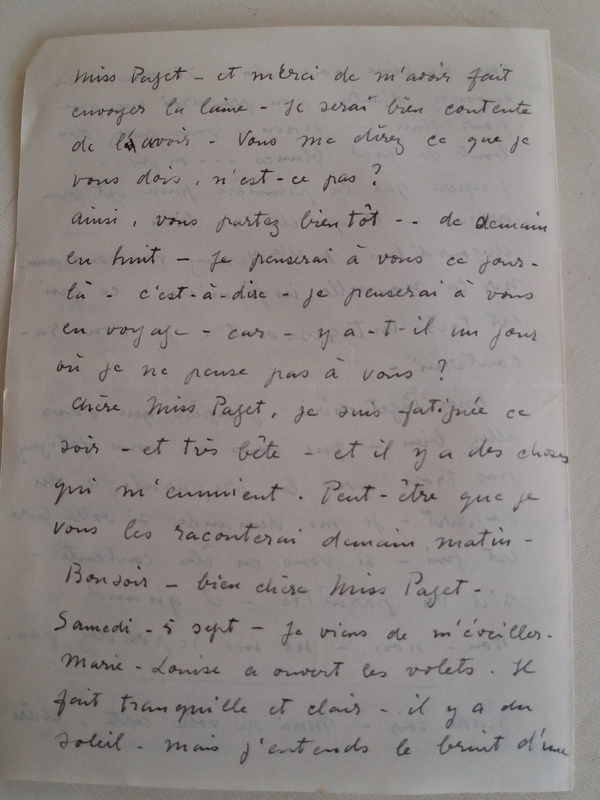 Miss Paget - et merci de m'avoir fait
envoyer la laine - Je serai bien contente
de l'avoir - Vous me direz ce que je
vous dois, n'est-ce pas ?
ainsi, vous partez bientôt -- de demain
en huit - Je penserai à vous ce jour-
là - c'est-à-dire - je penserai à vous
en voyage - car - y a-t-il un jour
où je ne pense pas à vous ?
Chère Miss Paget, je suis fatiguée ce
soir - et très bête - et il y a des choses
qui m'ennuient. Peut-être que je
vous les raconterai demain matin -
Bonsoir - bien chère Miss Paget -
Samedi - 5 sept - Je viens de m'éveiller -
Marie-Louise a ouvert les volets. Il
fait tranquille et clair - il y a du
soleil - mais j'entends le bruit d'une